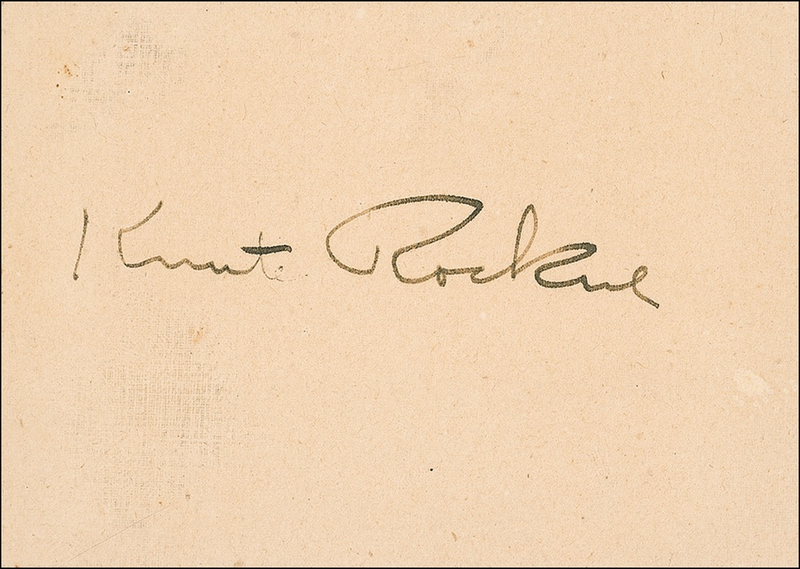 Knute Rockne